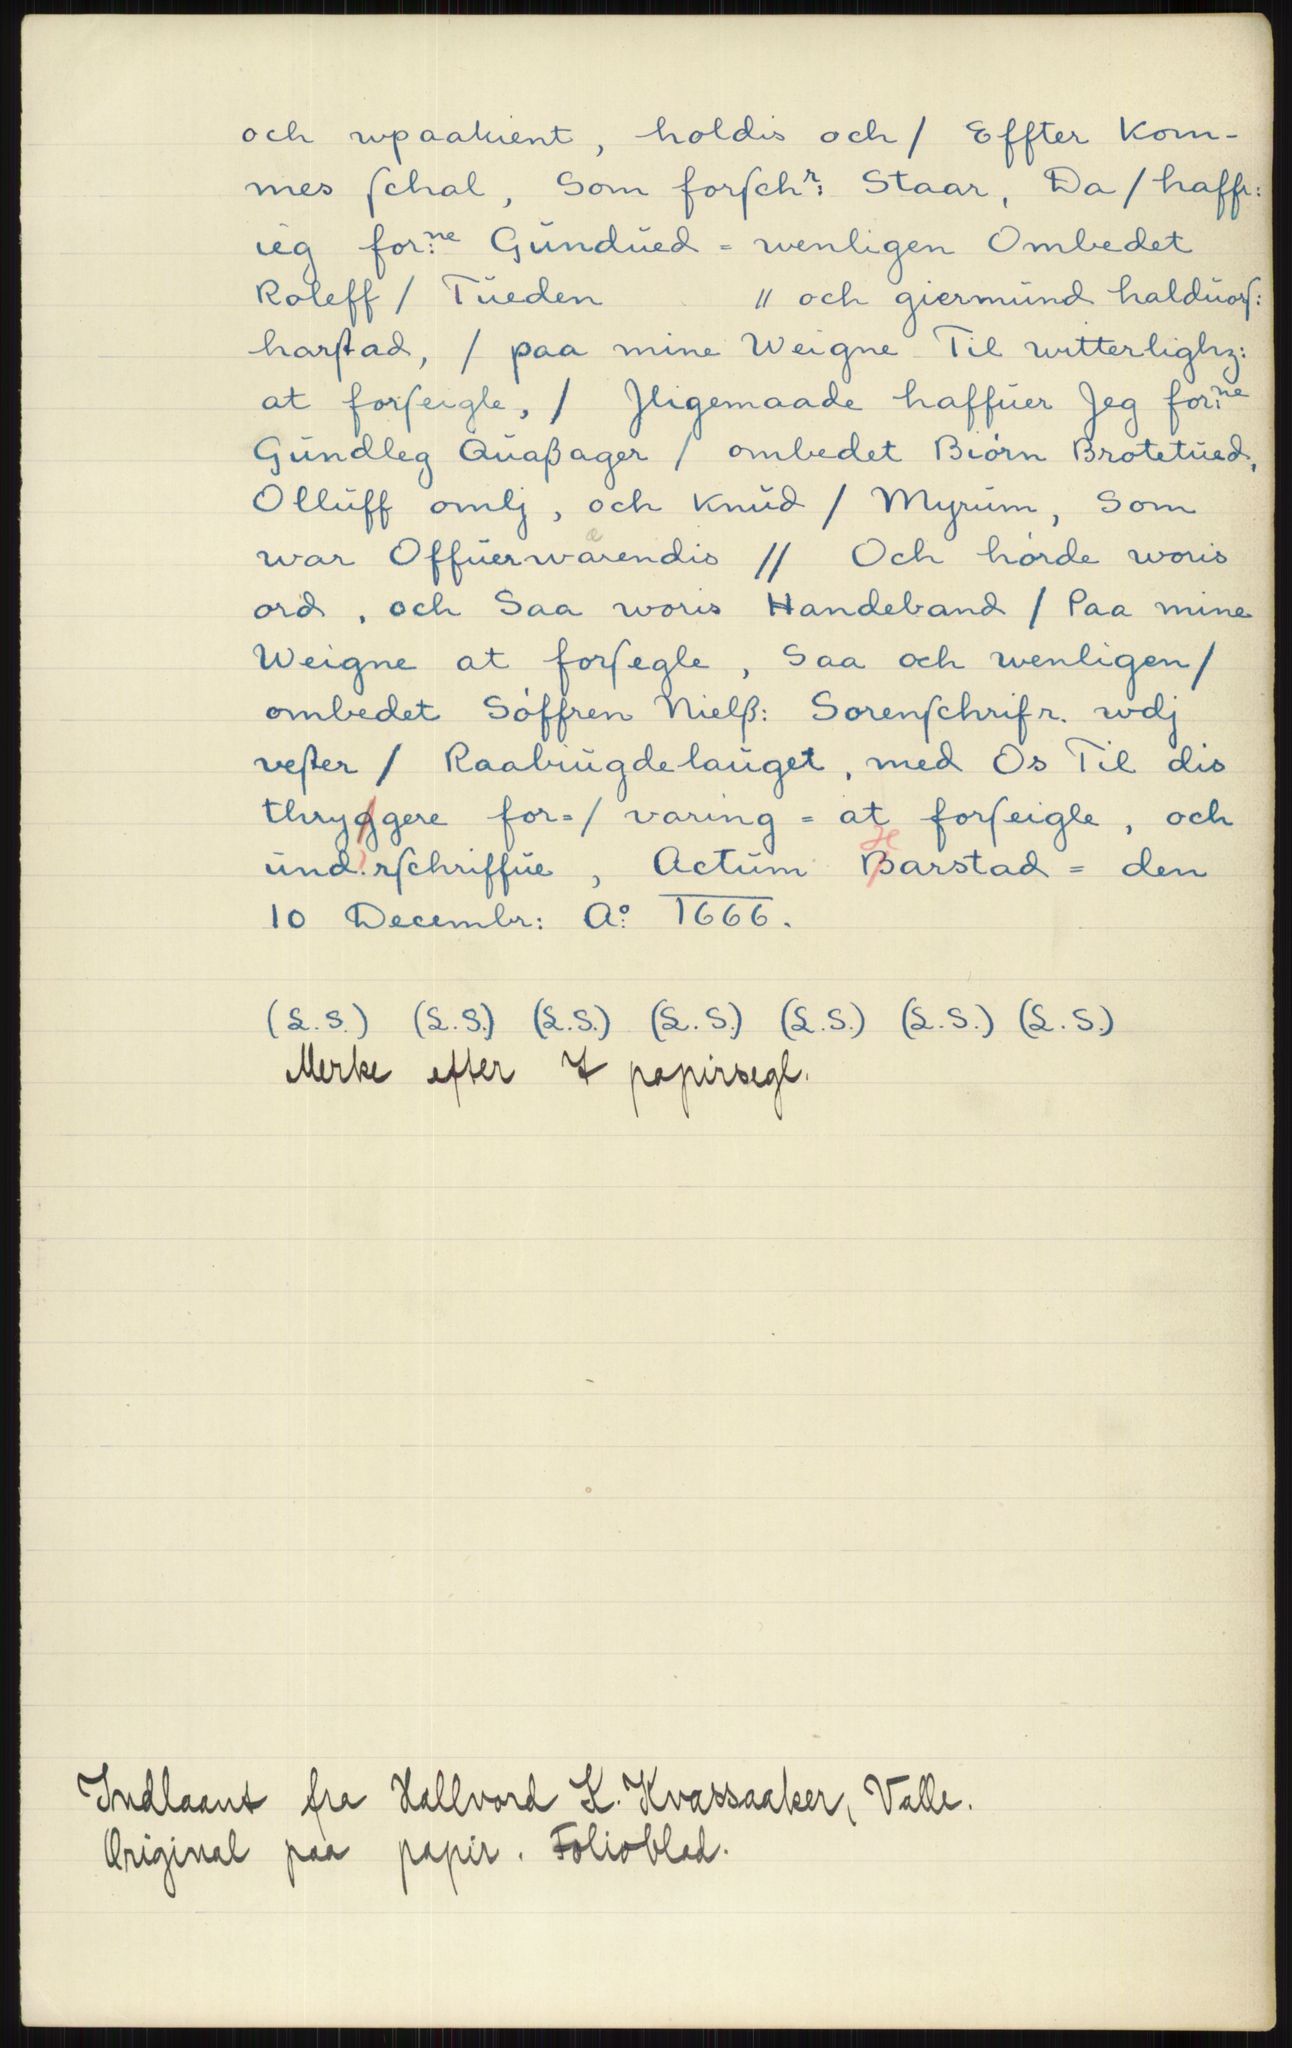 och wpaakient, holdis och / Effter Kom-
mes ſchal, Som forſchʳ: Staar, Da / haffr:
ieg for:ⁿᵉ Gündüed = wenligen Ombedet
Roleff / Tüeden // och giermünd haldüorſ:
harſtad, / paa mine Weigne Til witterlighz:
at forſeigle, / Jligemaade haffüer Jeg for:ⁿᵉ
Gündleg Qüaßager / ombedet Biórn Brotetüed,
Ollüff omlj, och Knüd / Myrüm, Som
war Offüerwarendis // Och hórde woris
ord, och Saa woris Handeband / Paa mine
Weigne at forſegle, Saa och wenligen /
ombedet Sóffren Nielß: Sorenſchrifr. wdj
veſter / Raabiügdelaüget, med Os Til dis
thryggere for=/ varing = at forſeigle, och
ünd:rſchriffüe, Actüm Barstad = den
10 Decembr: Aº: 1666.
(L.S.) (L.S.) (L.S.) (L.S.) (L.S.) (L.S.) (L.S.)
Merke efter 7 papirsegl.
Indlaant fra Hallvord K. Kvassaaker, Valle.
Original paa papir. Folioblad.